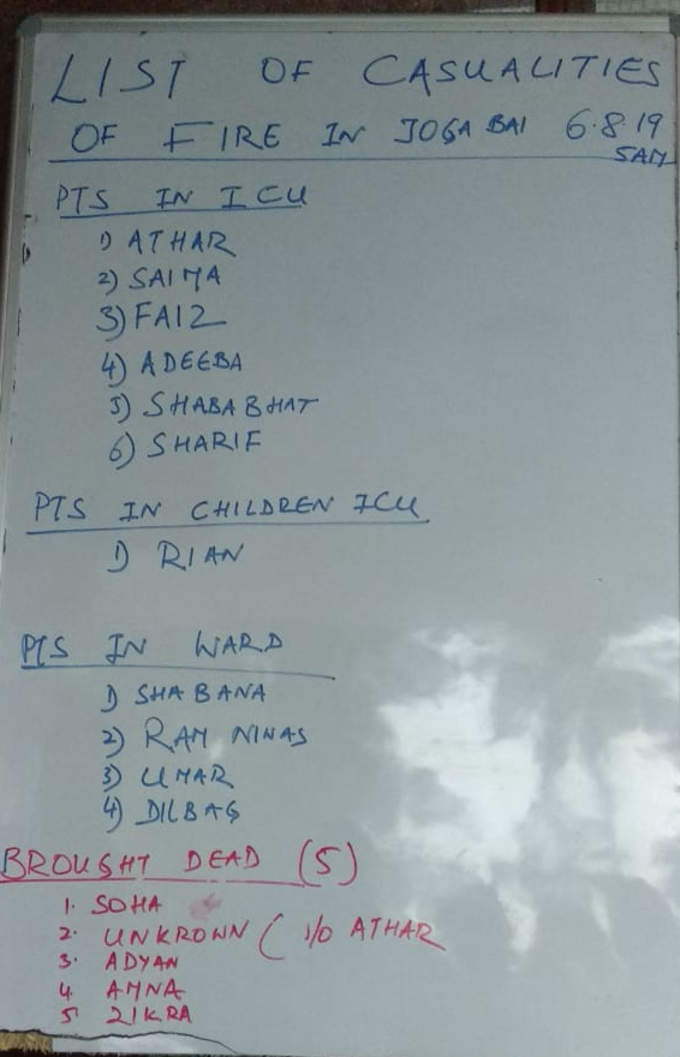 LIST OF CASUALITIES
OF FIRE IN JOGA BAI 6.8.19
5AM
PTS IN ICU
1) ATHAR
2) SAIMA
3) FAIZ
4) ADEEBA
5) SHABA BHAT
6) SHARIF
PTS IN CHILDREN ICU
1) RIAN
PTS IN WARD
1) SHABANA
2) RAM NIWAS
3) UMAR
4) DILBAG
BROUGHT DEAD (5)
1. SOHA
2. UNKROWN ( ATHAR
3. ADYAN
4. AMNA
5 ZIKRA